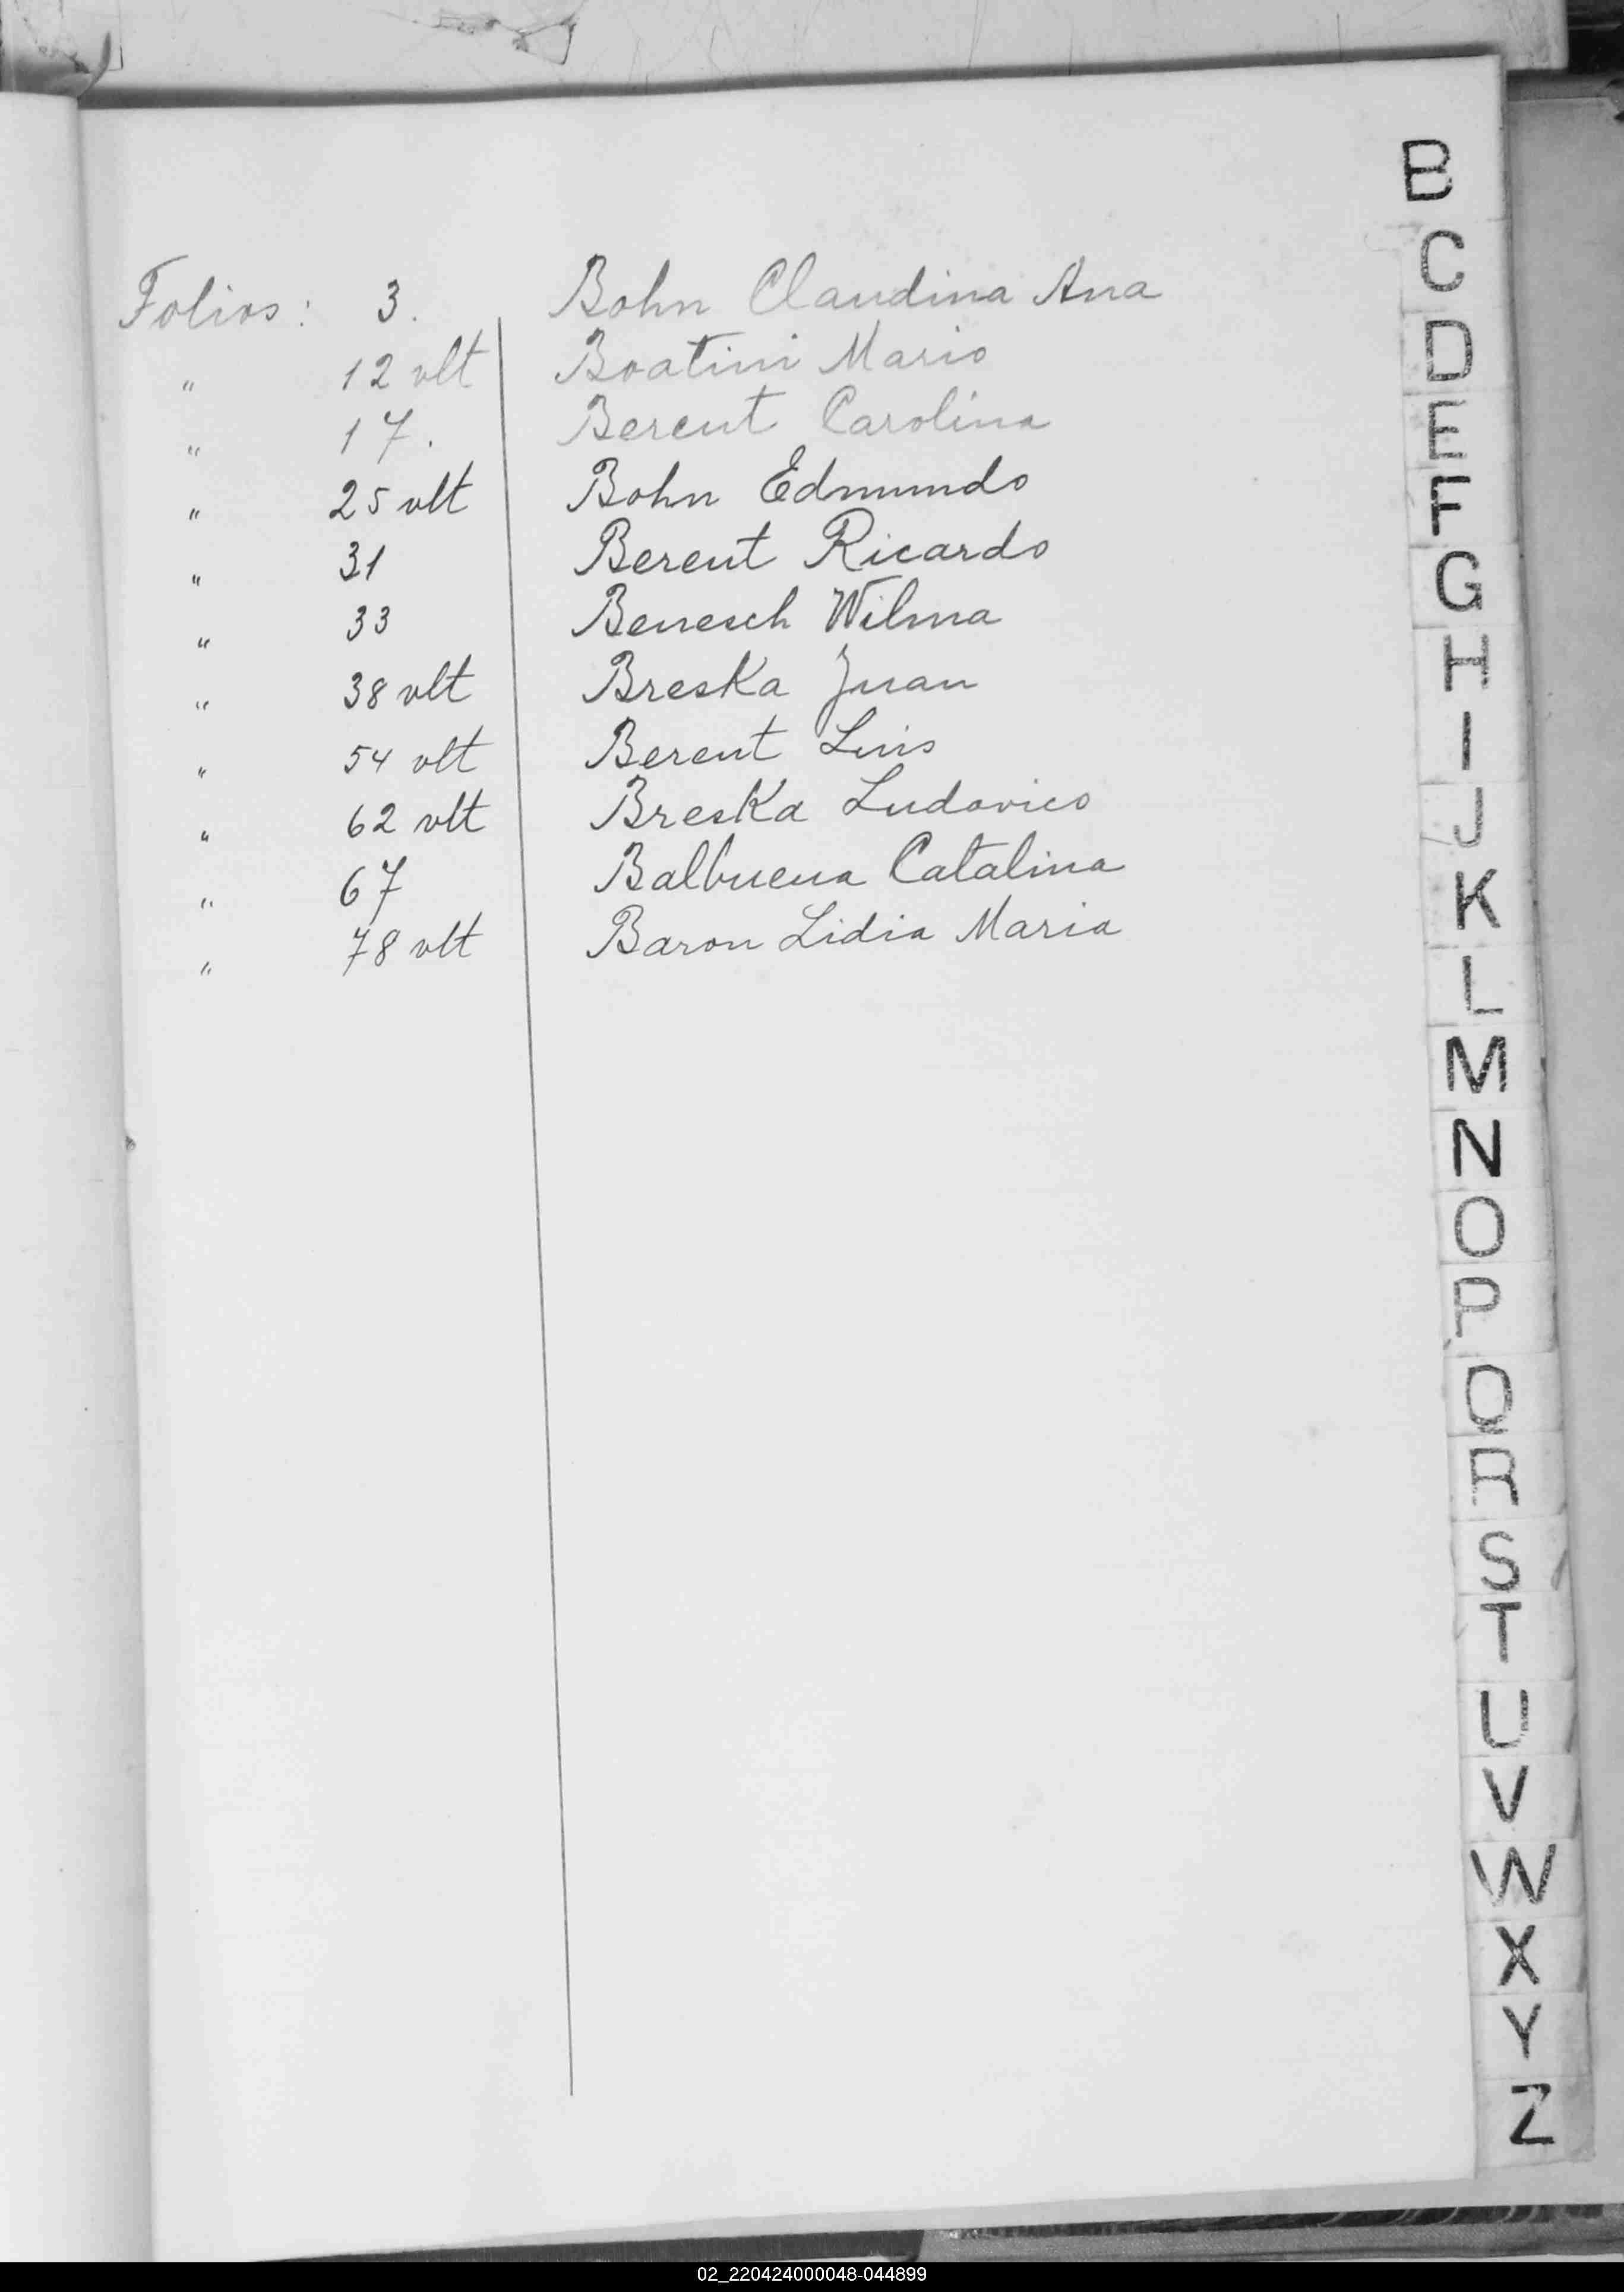 Folios: 3. Bohn Claudina Ana
" 12 vlt Boatini Mario
" 17. Berent Carolina
" 25 vlt Bohn Edmundo
" 31 Berent Ricardo
" 33 Benesch Wilma
" 38 vlt Breska Juan
" 54 vlt Berent Luis
" 62 vlt Breska Ludovico
" 67 Balbuena Catalina
" 78 vlt Baron Lidia Maria
B
C
D
E
F
G
H
I
J
K
L
M
N
O
P
Q
R
S
T
U
V
W
X
Y
Z
02_220424000048-044899